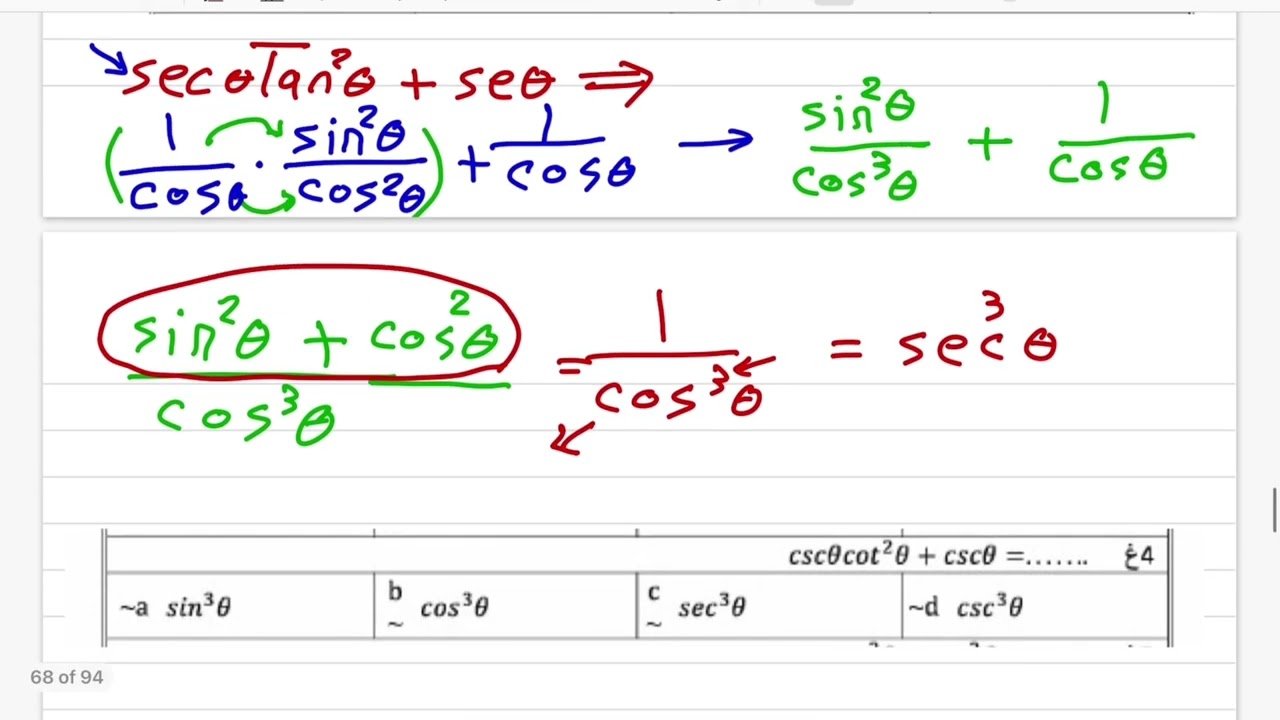 secθTan²θ + seθ ⇒
(1/cosθ · sin²θ/cos²θ) + 1/cosθ → sin²θ/cos³θ + 1/cosθ
(sin²θ + cos²θ)/cos³θ = 1/cos³θ = sec³θ
cscθcot²θ + cscθ =....... غ4
~a sin³θ
b ~ cos³θ
c ~ sec³θ
~d csc³θ
68 of 94